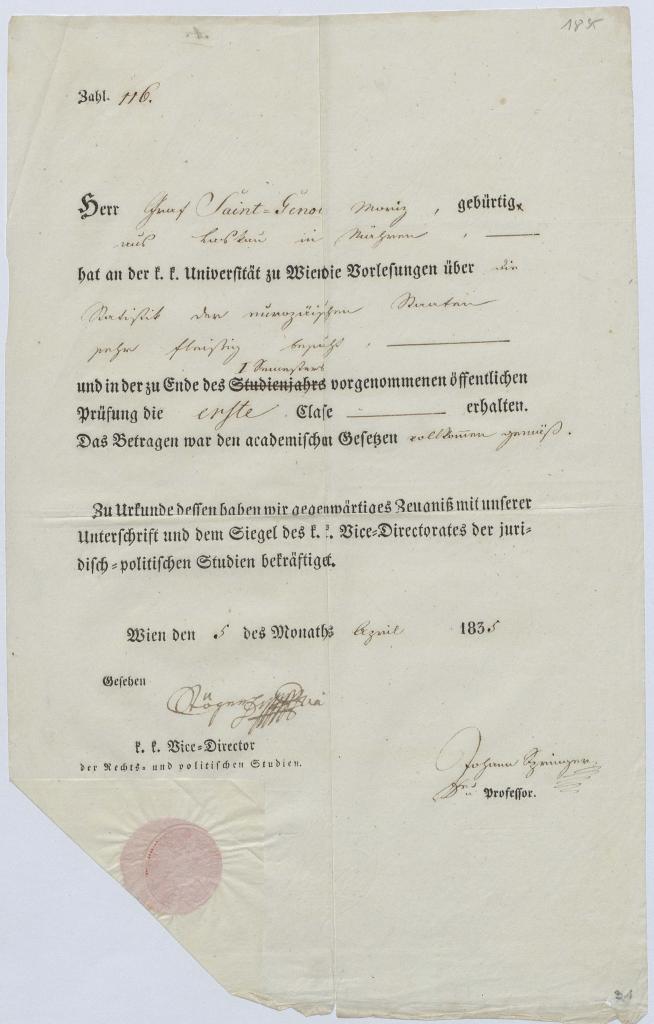 Zahl. 116.
Herr Graf Saint-Genois Moriz, gebürtig
aus Laskau in Mähren,
hat an der k. k. Universität zu Wien die Vorlesungen über die
Statistik der europäischen Staaten
sehr fleißig besucht,
I Semesters
und in der zu Ende des Studienjahrs vorgenommenen öffentlichen
Prüfung die erste Clase erhalten.
Das Betragen war den academischen Gesetzen vollkommen gemäß.
Zu Urkunde dessen haben wir gegenwärtiges Zeugniß mit unserer
Unterschrift und dem Siegel des k. k. Vice-Directorates der juri-
disch-politischen Studien bekräftiget.
Wien den 5 des Monaths April 1835
Gesehen
k. k. Vice-Director
der Rechts- und politischen Studien.
Johann Springer
Professor.
31